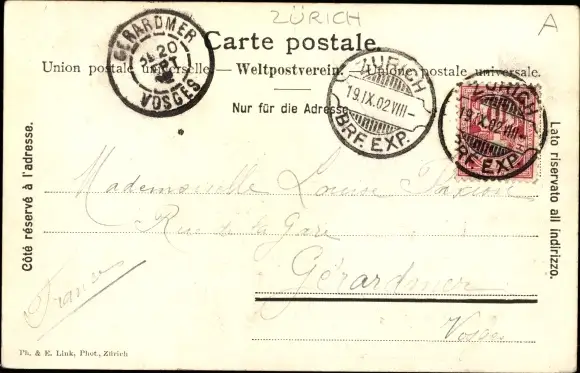 ZÜRICH
A
GÉRARDMER
20
SEPT
VOSGES
Carte postale.
Union postale universelle. — Weltpostverein. — Unione postale universale.
Nur für die Adresse
ZÜRICH
19.IX.02.VIII–
BRF. EXP.
ZÜRICH
19.IX.02.VIII–
BRF. EXP.
Côté réservé à l'adresse.
Lato riservato all indirizzo.
Mademoiselle Louise
Rue de la Gare
Gérardmer
Vosges
France
Ph. & E. Link, Phot., Zürich